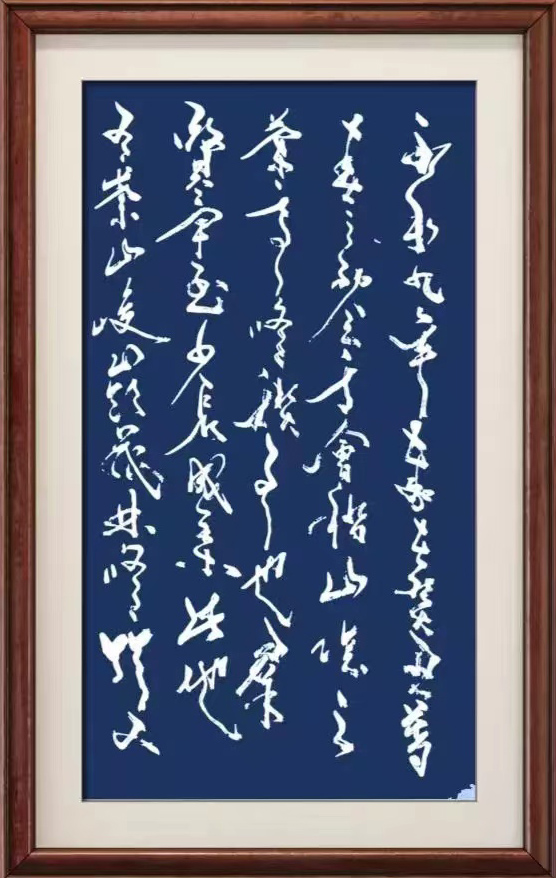 永和九年歲在癸丑暮
春之初會于會稽山陰之
蘭亭修禊事也群
賢畢至少長咸集此地
有崇山峻嶺茂林修竹又